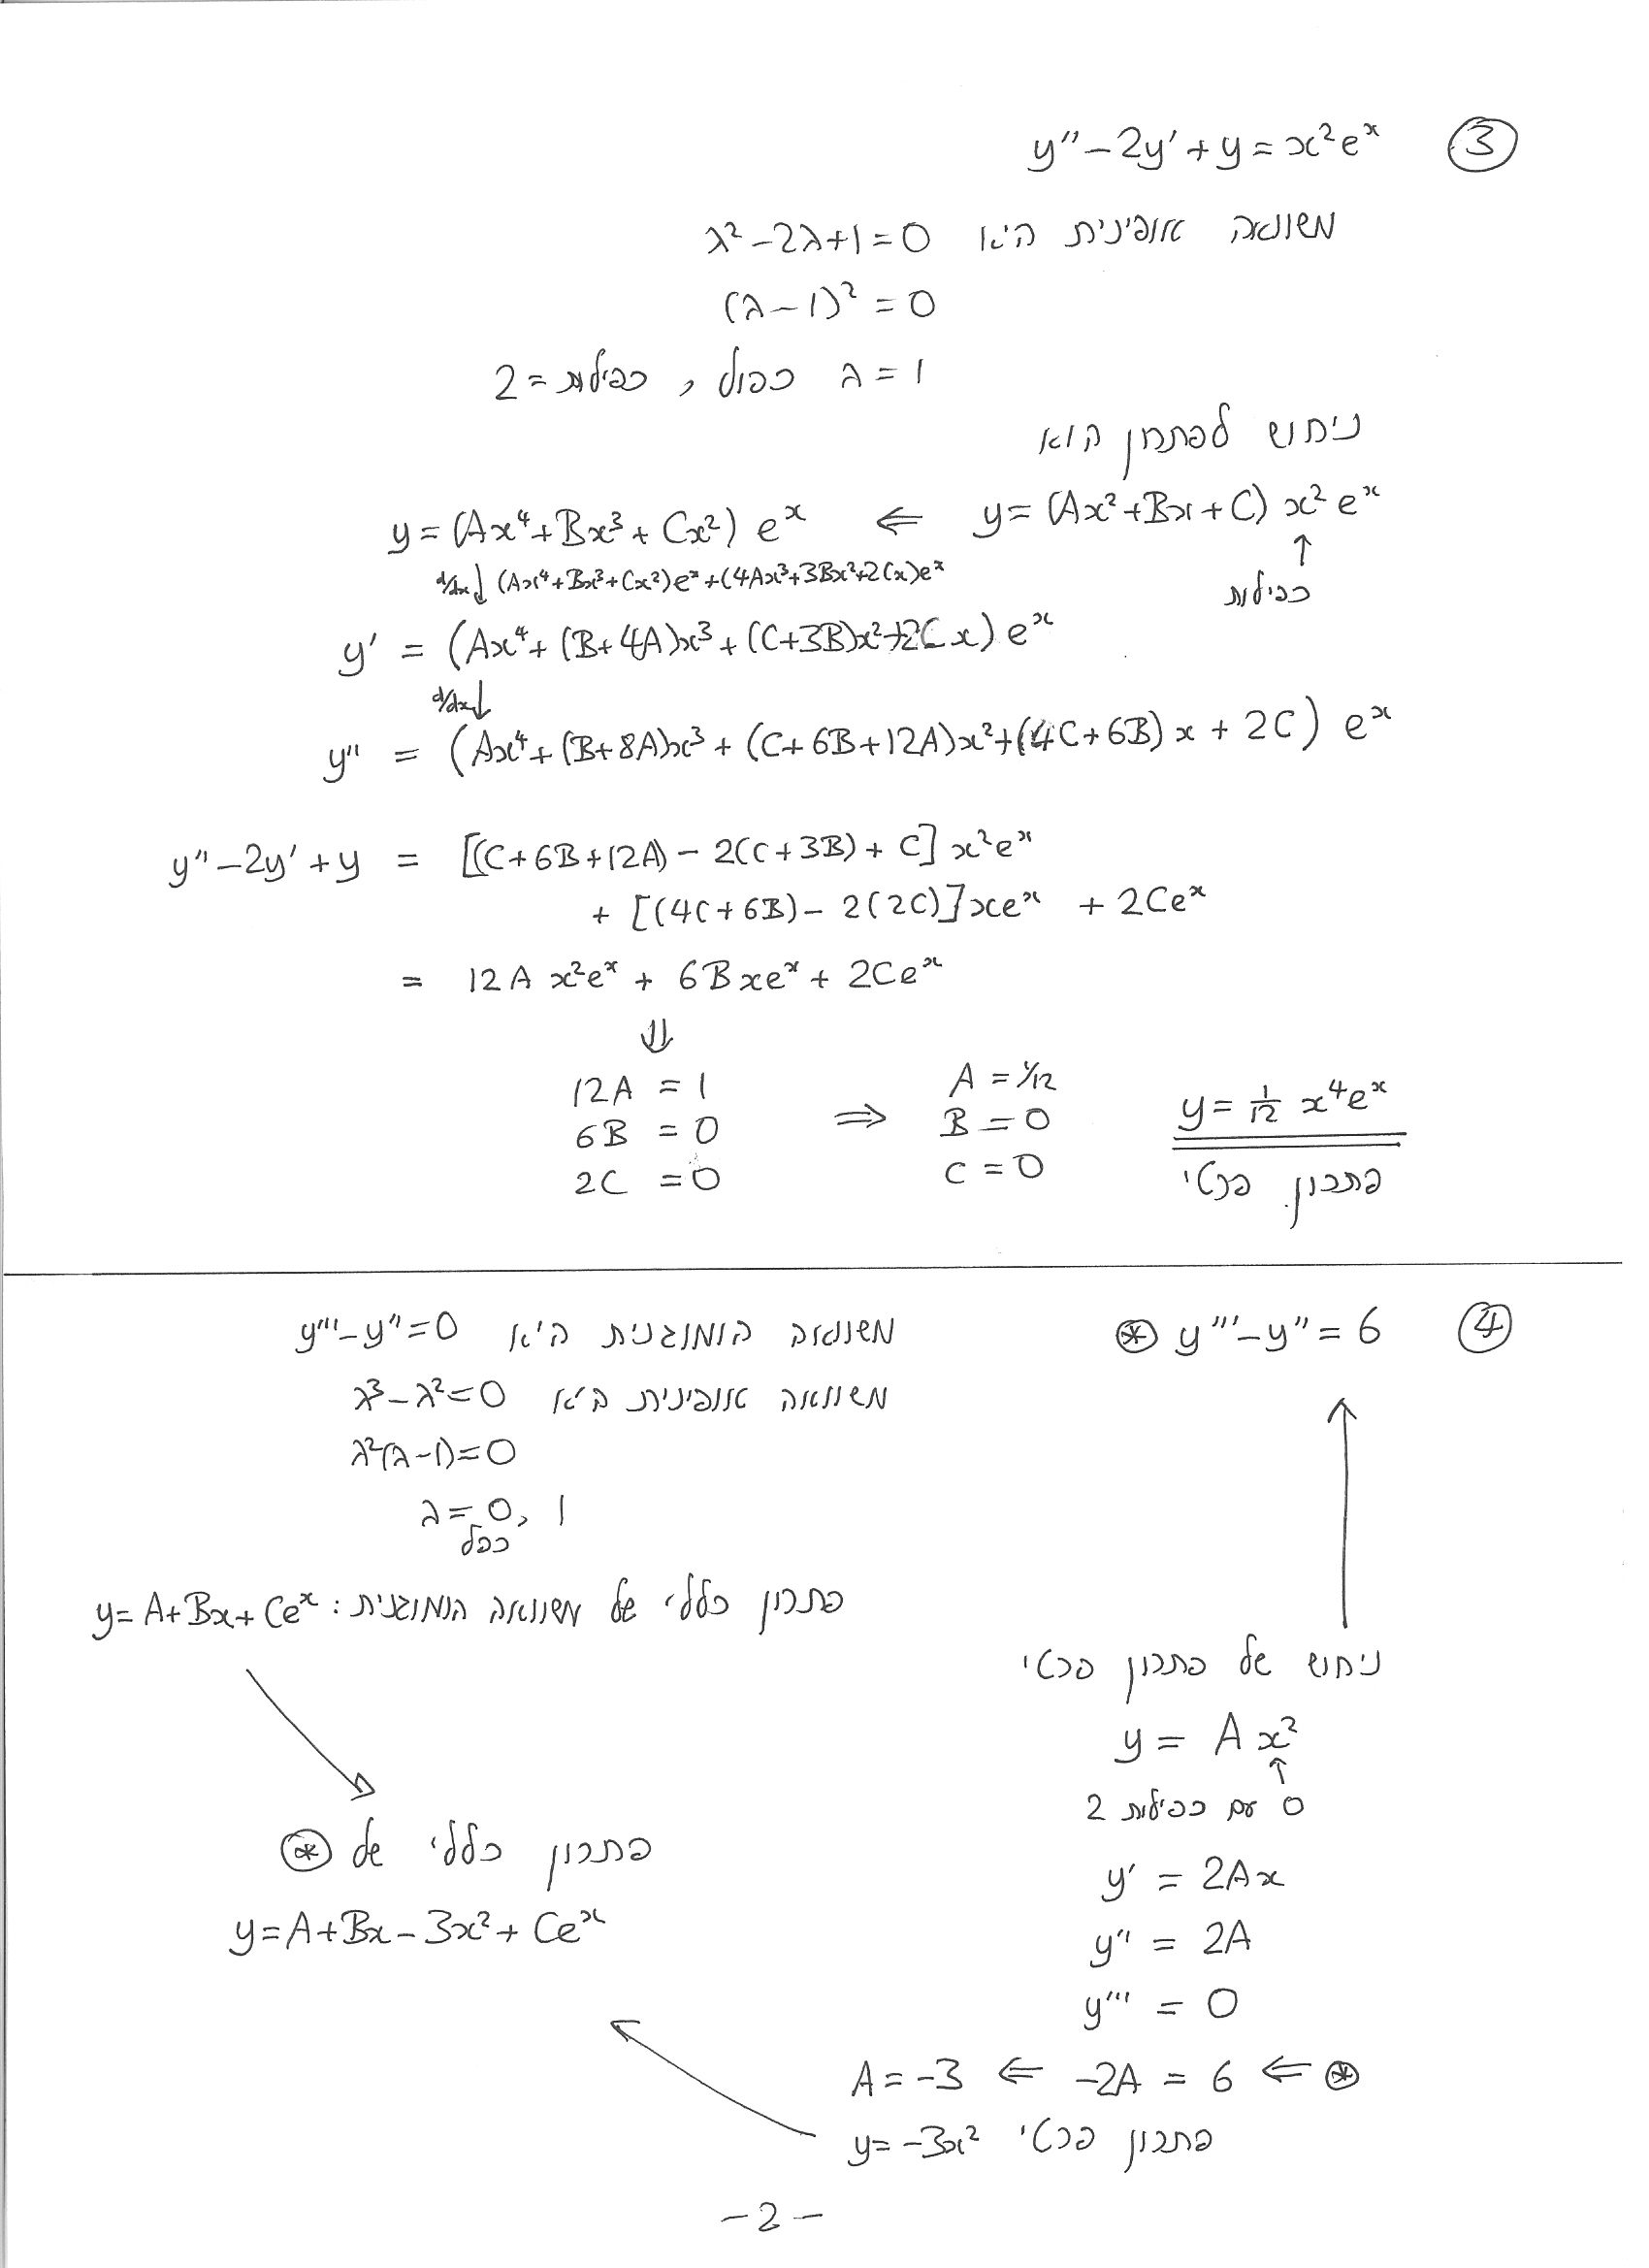 ③ y'' - 2y' + y = x²eˣ
משוואה אופינית היא λ² - 2λ + 1 = 0
(λ - 1)² = 0
λ = 1 כפול, כפילות = 2
ניחוש לפתרון הוא
y = (Ax² + Bx + C) x² eˣ ⇐ y = (Ax⁴ + Bx³ + Cx²) eˣ
↑ כפילות
d/dx ↓ (Ax⁴ + Bx³ + Cx²)eˣ + (4Ax³ + 3Bx² + 2Cx)eˣ
y' = (Ax⁴ + (B + 4A)x³ + (C + 3B)x² + 2Cx) eˣ
d/dx ↓
y'' = (Ax⁴ + (B + 8A)x³ + (C + 6B + 12A)x² + (4C + 6B)x + 2C) eˣ
y'' - 2y' + y = [(C + 6B + 12A) - 2(C + 3B) + C] x²eˣ
+ [(4C + 6B) - 2(2C)] xeˣ + 2Ceˣ
= 12A x²eˣ + 6B xeˣ + 2Ceˣ
⇓
12A = 1
6B = 0
2C = 0
⇒
A = 1/12
B = 0
C = 0
y = 1/12 x⁴eˣ
פתרון פרטי
④ y''' - y'' = 6 ⊛
משוואה הומוגנית היא y''' - y'' = 0
משוואה אופינית היא λ³ - λ² = 0
λ²(λ - 1) = 0
λ = 0, 1
כפל
פתרון כללי של משוואה הומוגנית: y = A + Bx + Ceˣ
ניחוש של פתרון פרטי
y = A x²
↑
0 עם כפילות 2
y' = 2Ax
y'' = 2A
y''' = 0
⊛ ⇒ -2A = 6 ⇒ A = -3
פתרון פרטי y = -3x²
פתרון כללי של ⊛
y = A + Bx - 3x² + Ceˣ
- 2 -